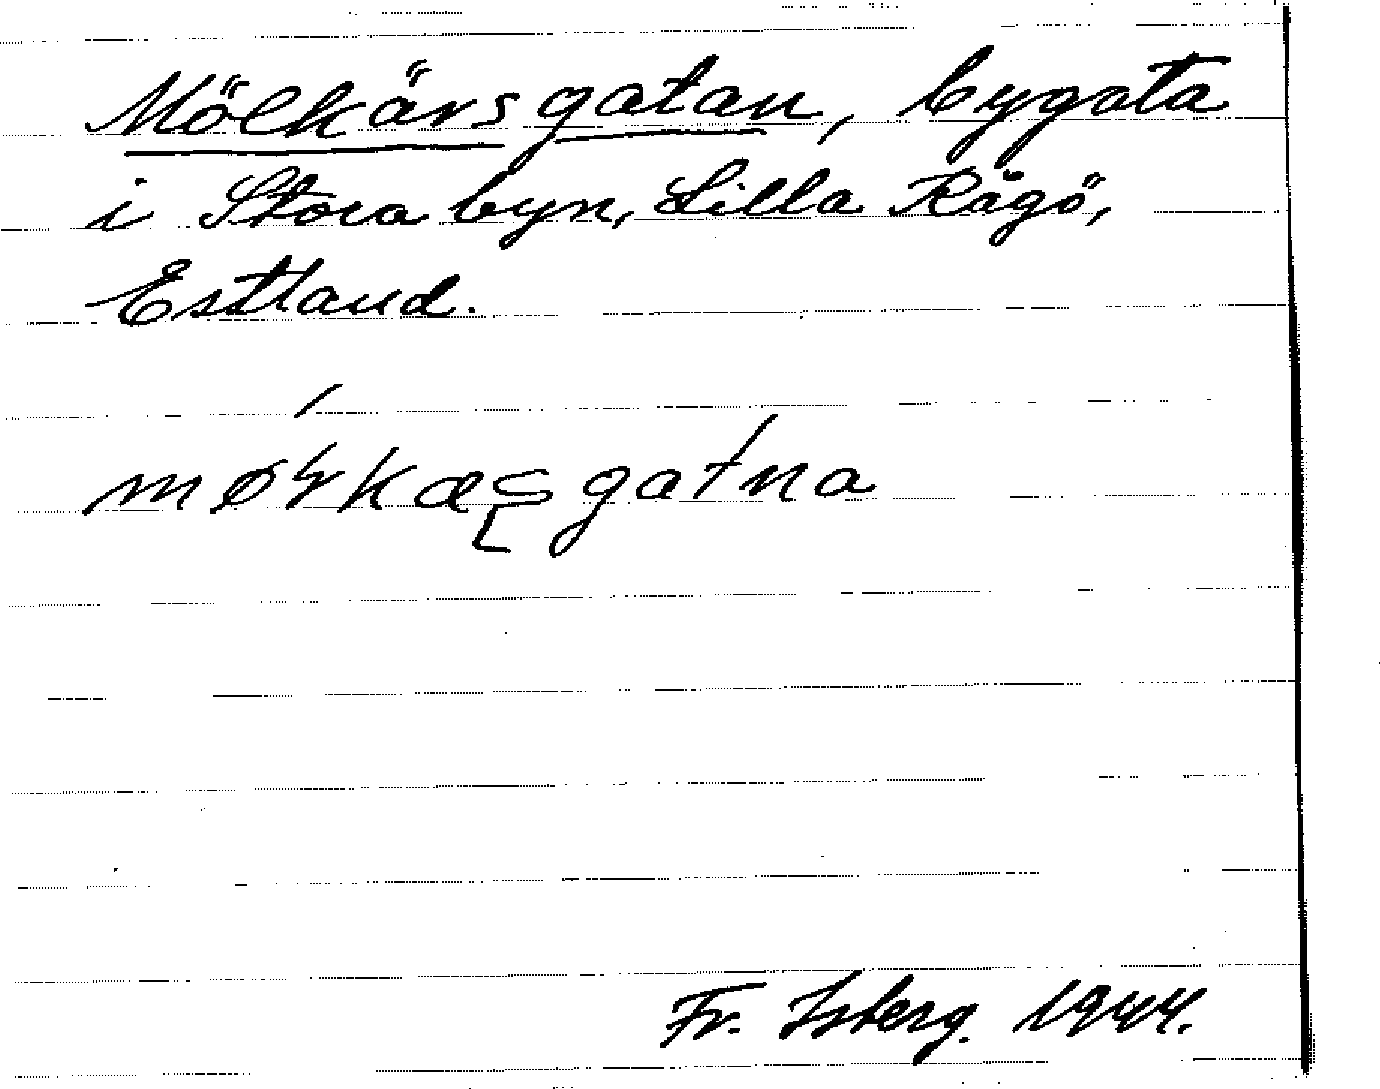 Mölkärsgatan, bygata
i Stora byn, Lilla Rågö,
Estland.
Fr. Isberg. 1944.